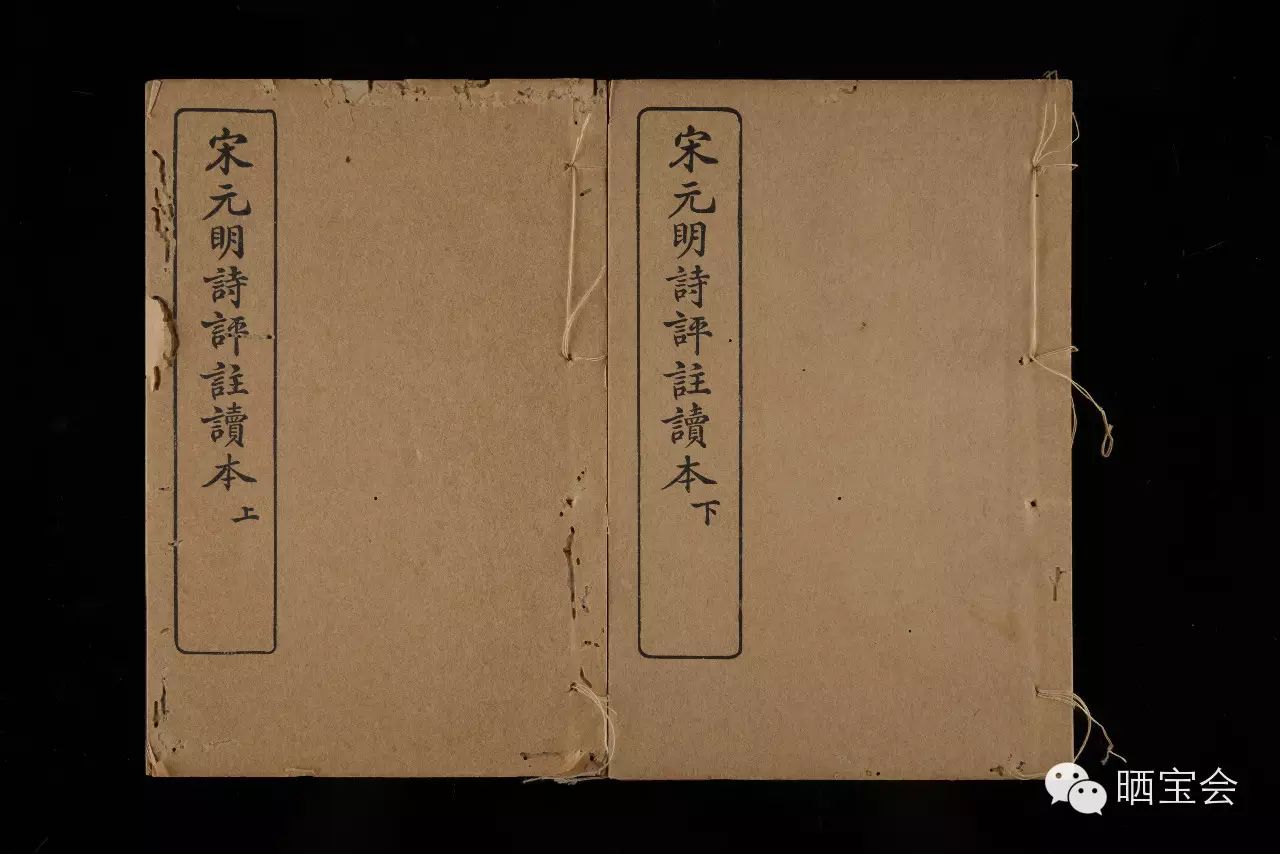 宋元明詩評註讀本上
宋元明詩評註讀本下
晒宝会